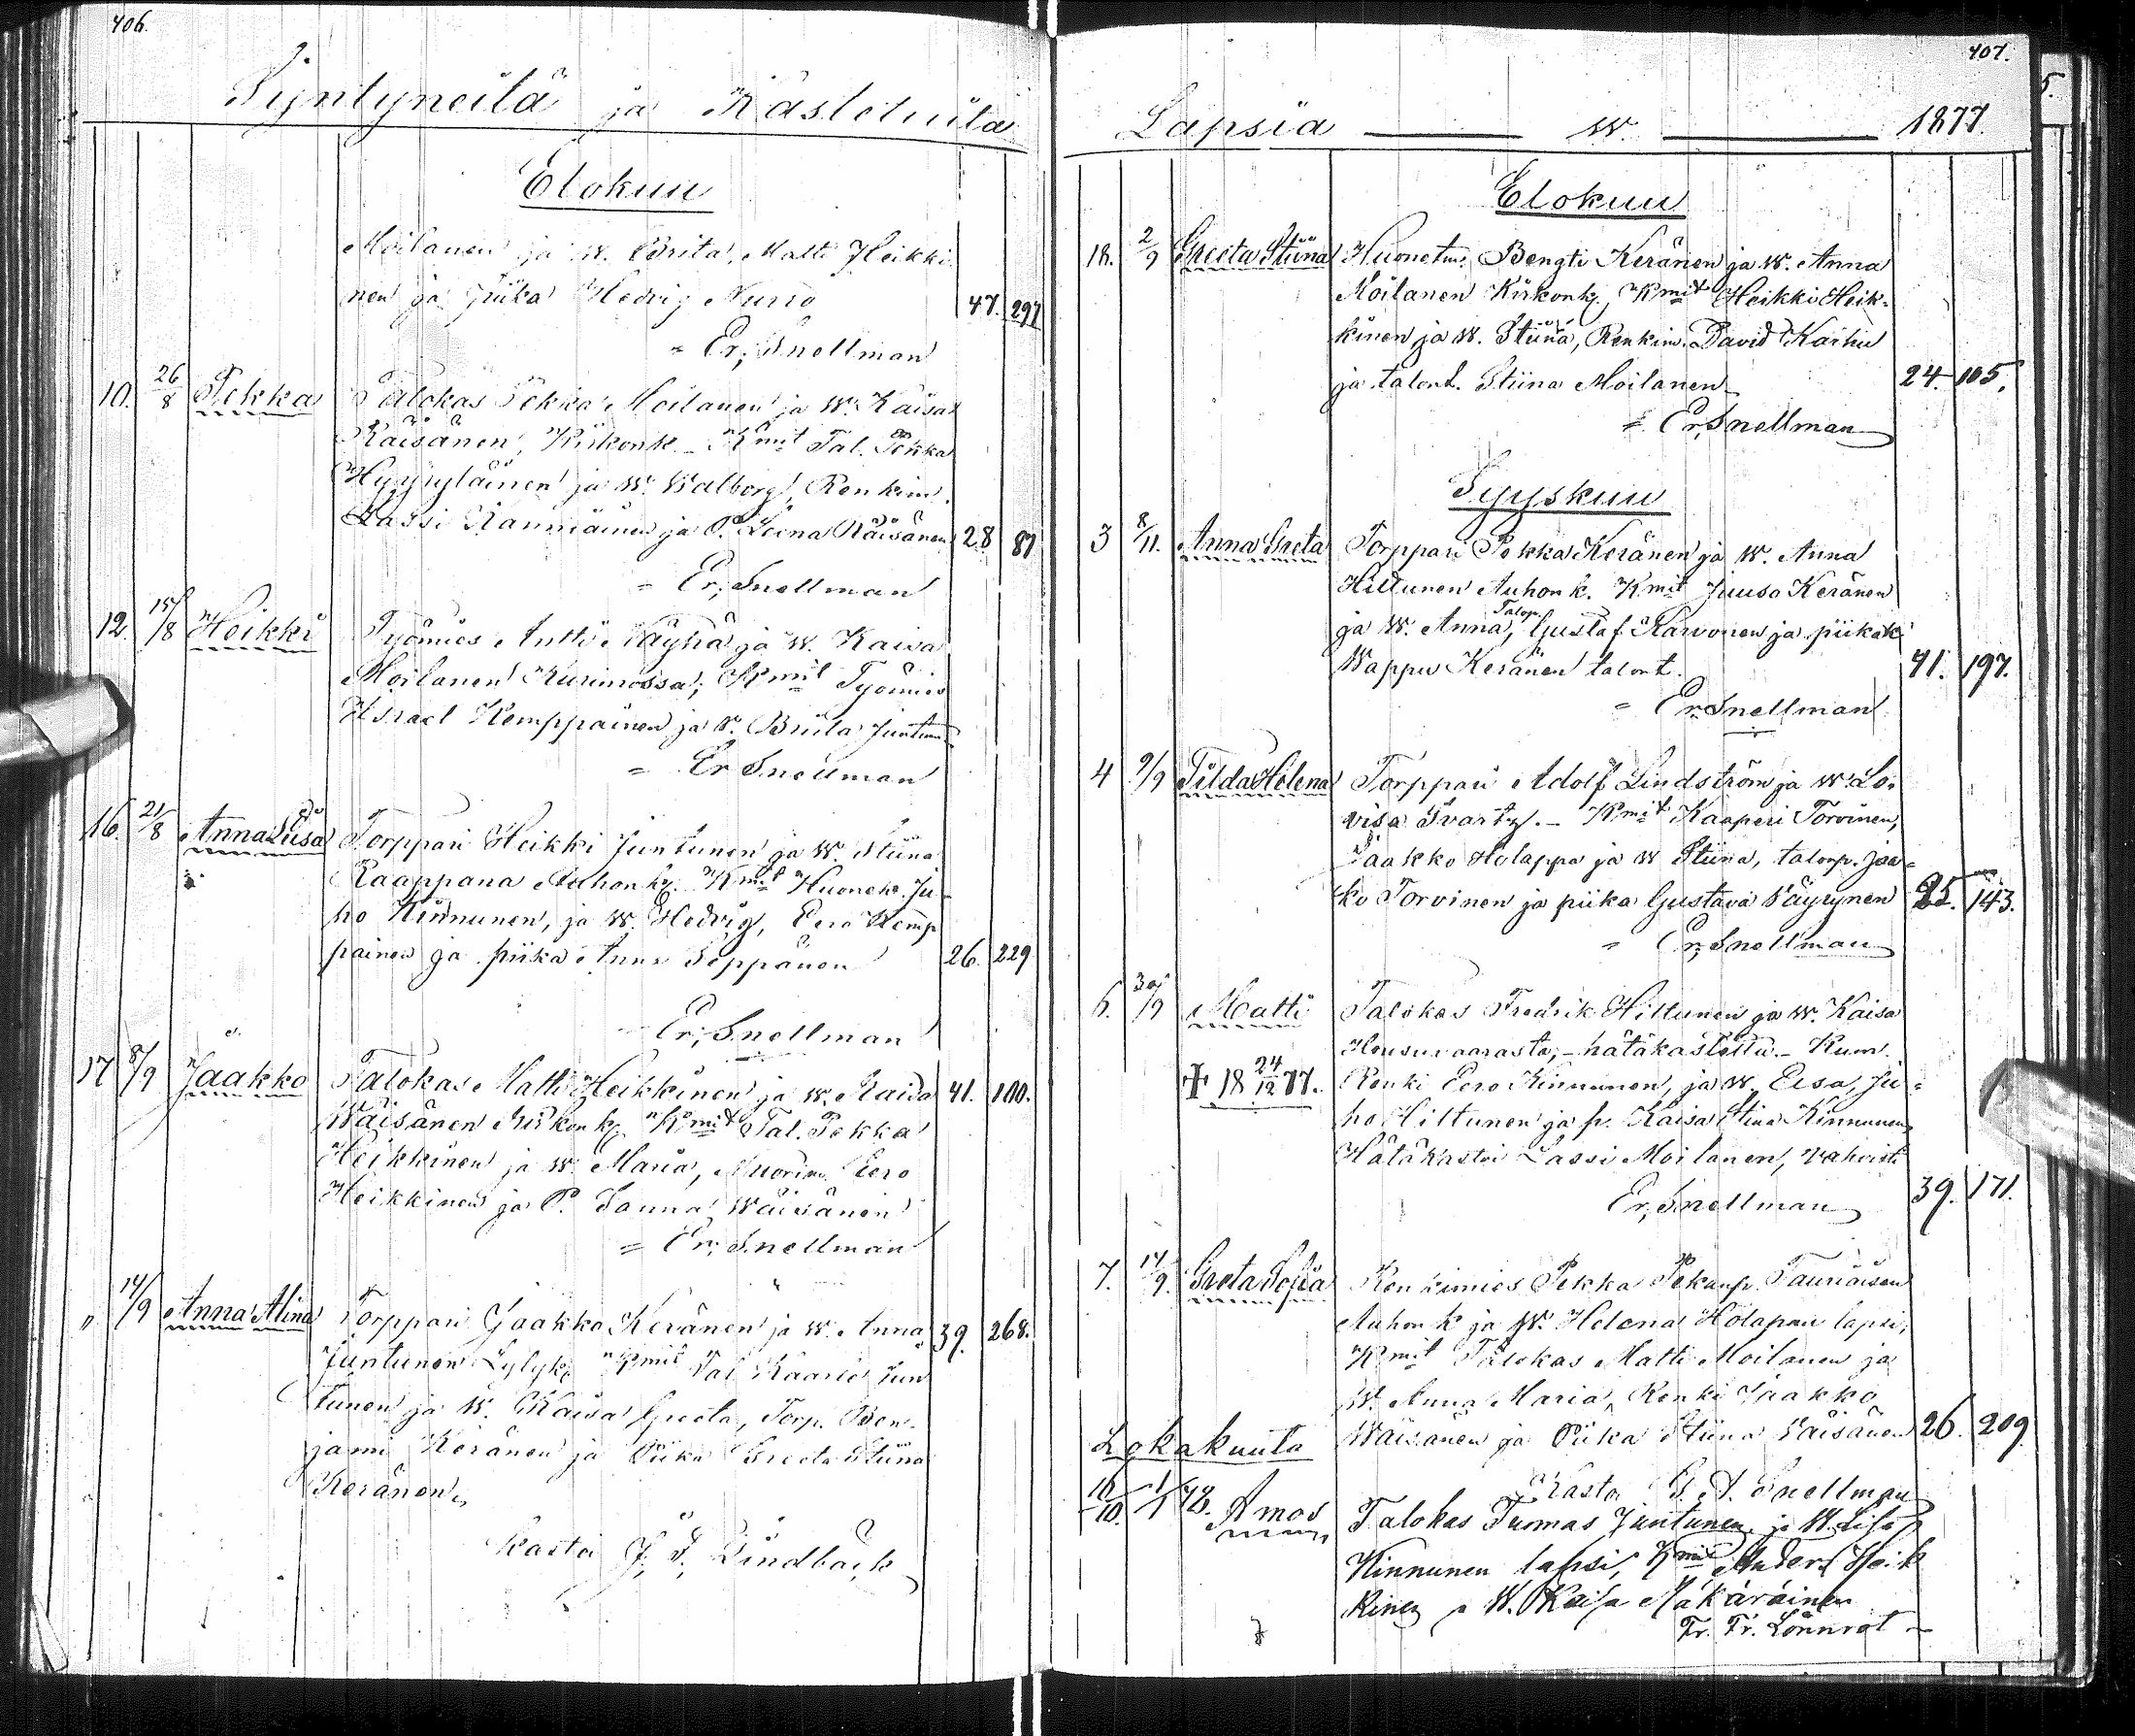 406.
Syntyneitä ja Kastetuita
Elokuu
Moilanen ja W. Brita, Matti Heikki
nen ja piika Hedvig Nurro 47. 297
= Er; Snellman
10. 26/8 Pekka Talokas Pekka Moilanen ja W. Kaisa
Räisänen, Kirkonk. Kmit Tal. Pekka
Hyyryläinen ja W. Walborg, Renkim.
Lassi ja P. Leena Räisänen 28 87
= Er; Snellman
12. 15/8 Heikki Työmies Antti Väyhä ja W. Kaisa
Moilanen Kurimossa; Kmit Työmies
Israel Kemppainen ja W. Briita Juntunen
= Er Snellman
16. 21/8 Anna Liisa Torppari Heikki Juntunen ja W. Stiina
Kaappana Auhonk. Kmit Huonem. Ju-
ho Kinnunen, ja W. Hedvig, Eero Kemp
painen ja piika Anna Seppänen 26. 229
Er; Snellman
17 8/9 Jaakko Talokas Matti Heikkinen ja W. Kaisa 41. 100.
Wäisänen Kirkonk. Kmit Tal. Pekka
Heikkinen ja W. Maria, Nuorim. Eero
Heikkinen ja P. Sanna Wäisänen
= Er; Snellman
" 14/9 Anna Alina Torppari Jaakko Keränen ja W. Anna 39. 268.
Juntunen Lylyk. Kmit Tal Kaarlo Jun
tunen ja W. Kaisa Greeta, Torp. Ben-
jami Keränen ja Piika Greeta Stiina
Keränen
Kastoi J. F. Lindbäck
407.
Lapsia W. 1877.
Elokuu
18. 2/9 Greeta Stiina Huonetm. Bengti Keränen ja W. Anna
Moilanen Kirkonk., Kmit Heikki Heik-
kinen ja W. Stiina, Renkim. David Karhu
ja talont. Stiina Moilanen 24. 105.
= Er; Snellman
Syyskuu
3 8/11. Anna Greta Torppari Pekka Keränen ja W. Anna
Hiltunen Auhonk. Kmit Juuso Keränen
ja W. Anna, Talop. Gustaf Karvonen ja piikak
Wappu Keränen talont. 41. 197.
= Er. Snellman
4 9/9 Tilda Helena Torppari Adolf Lindström ja W. Lo-
visa Svartz. - Kmit Kaaperi Torvinen,
Jaakko Holappa ja W Stiina, talonp. Jaa-
ko Torvinen ja piika Gustava Väyrynen 25. 143.
= Er; Snellman
6. 30/9 Matti Talokas Fredrik Hiltunen ja W. Kaisa
Housuvaarasta; - hätäkastettu. - Kum.
✝ 18 24/12 77. Renki Eero Kinnunen, ja W. Eesa, Ju-
ho Hiltunen ja p. Kaisa Stina Kinnunen
Hätäkastoi Lassi Moilanen, vahvisti
Er; Snellman 39. 171.
7. 17/9. Greta Sofia Renkimies Pekka Pekanp. Tauriaisen
Auhonk ja W. Helena Holapan lapsi;
Kmit Talokas Matti Moilanen ja
W. Anna Maria, Renki Jaakko
Wäisänen ja Piika Stiina Väisänen 26. 209
Kasto G. A. Snellman
Lokakuuta
10/10. 1/1 78. Amos Talokas Tuomas Juntunen ja W. Lisa
Kinnunen lapsi, Kmit Anders Heik
kinen ja W. Kaisa Mäkäräinen
Fr. Fr. Lönnrot